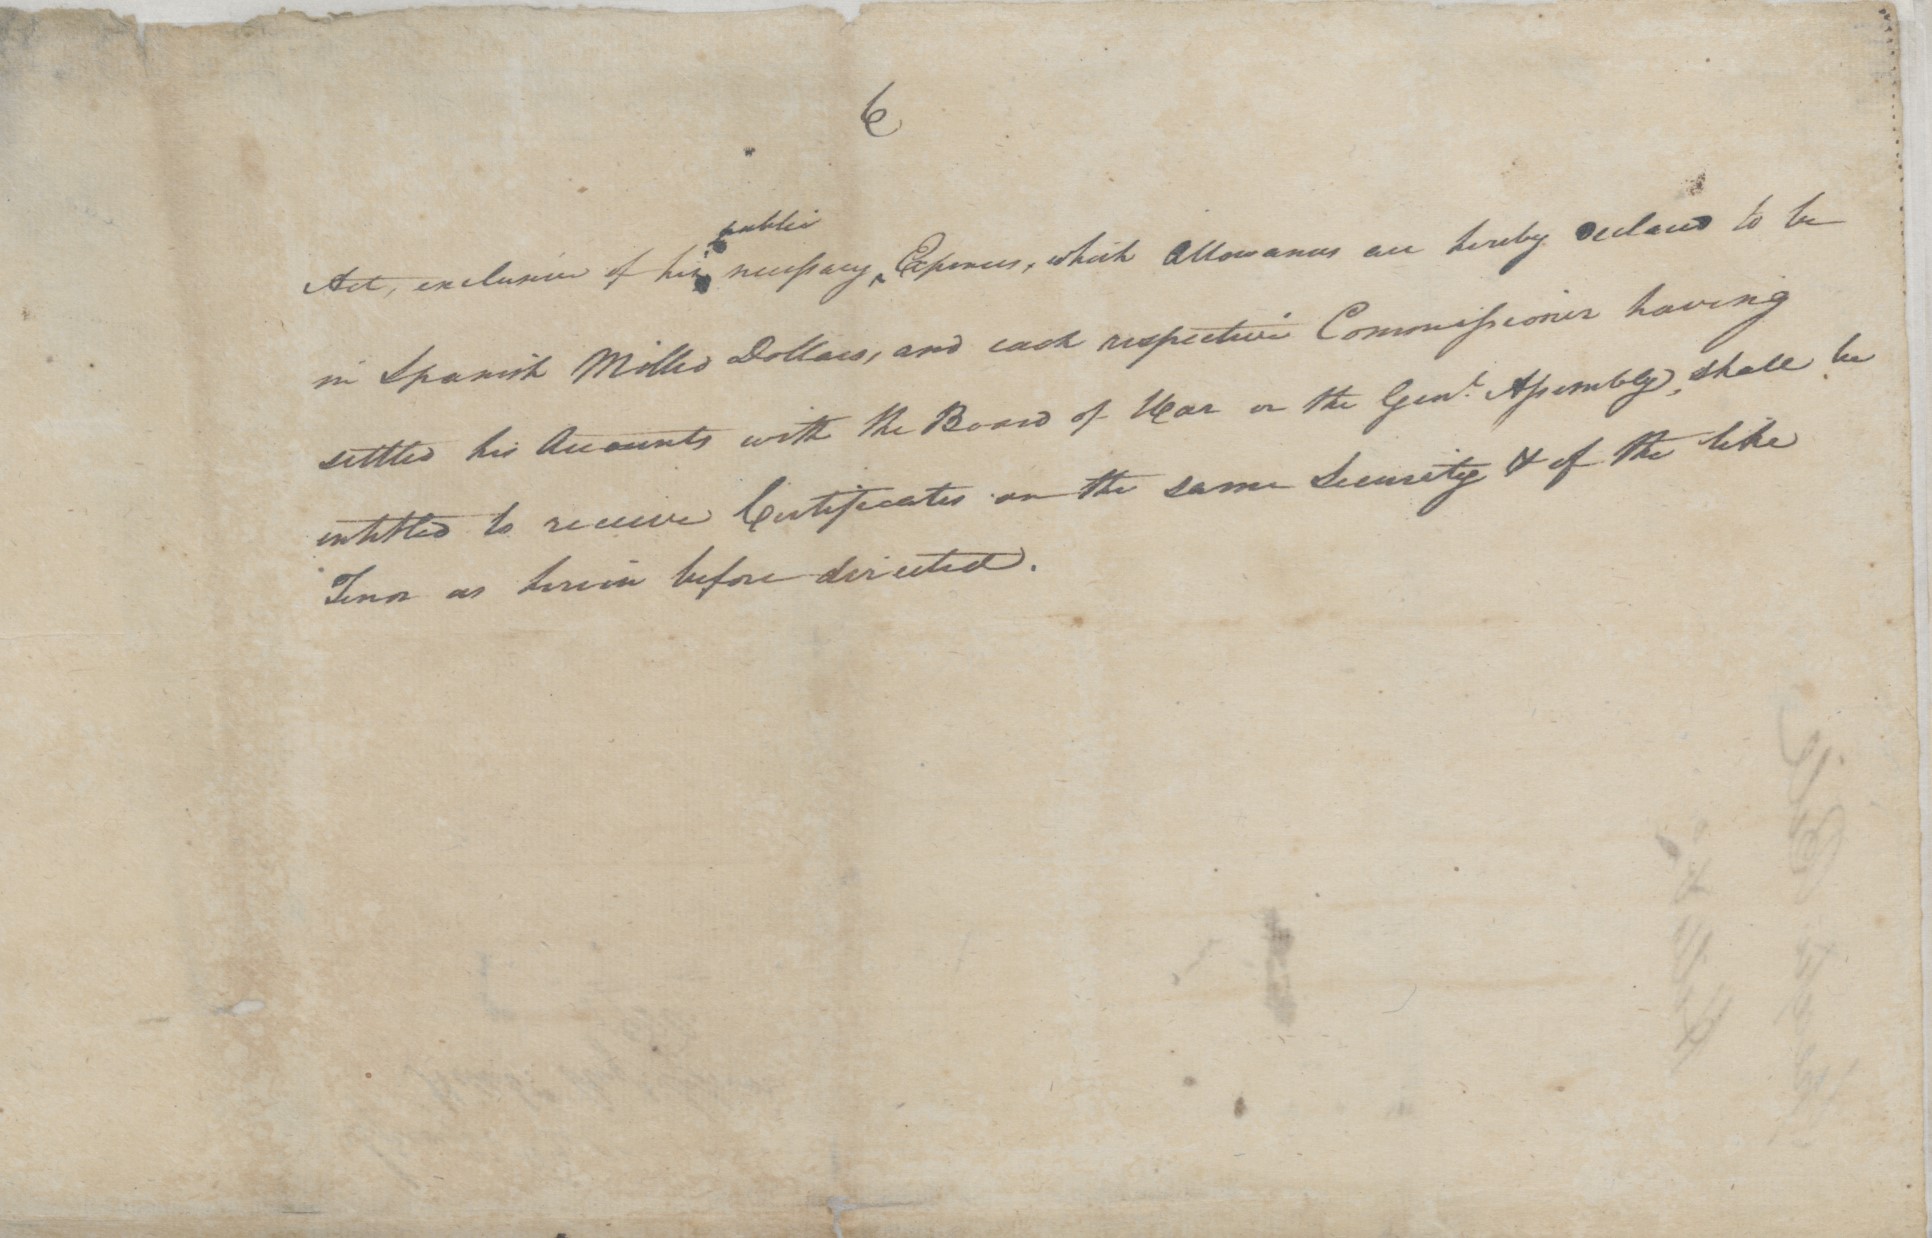 6
public
Act, exclusive of his necessary ^ Expences, which Allowances are hereby declared to be
in Spanish Milled Dollars, and each respective Commissioner having
settled his Accounts with the Board of War or the Genl. Assembly, shall be
intitled to receive Certificates on the same Security & of the like
Tenor as herein before directed.